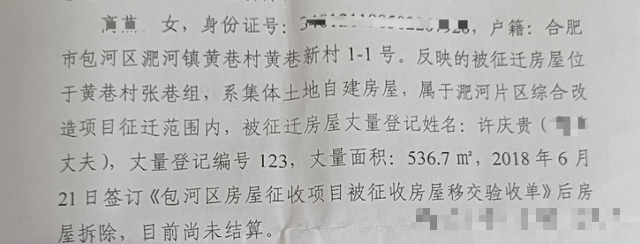 女，身份证号：　　　　　　，户籍：合肥
市包河区淝河镇黄巷村黄巷新村 1-1 号。反映的被征迁房屋位
于黄巷村张巷组，系集体土地自建房屋，属于淝河片区综合改
造项目征迁范围内，被征迁房屋丈量登记姓名：许庆贵（
丈夫），丈量登记编号 123，丈量面积：536.7㎡，2018 年 6 月
21 日签订《包河区房屋征收项目被征收房屋移交验收单》后房
屋拆除，目前尚未结算。